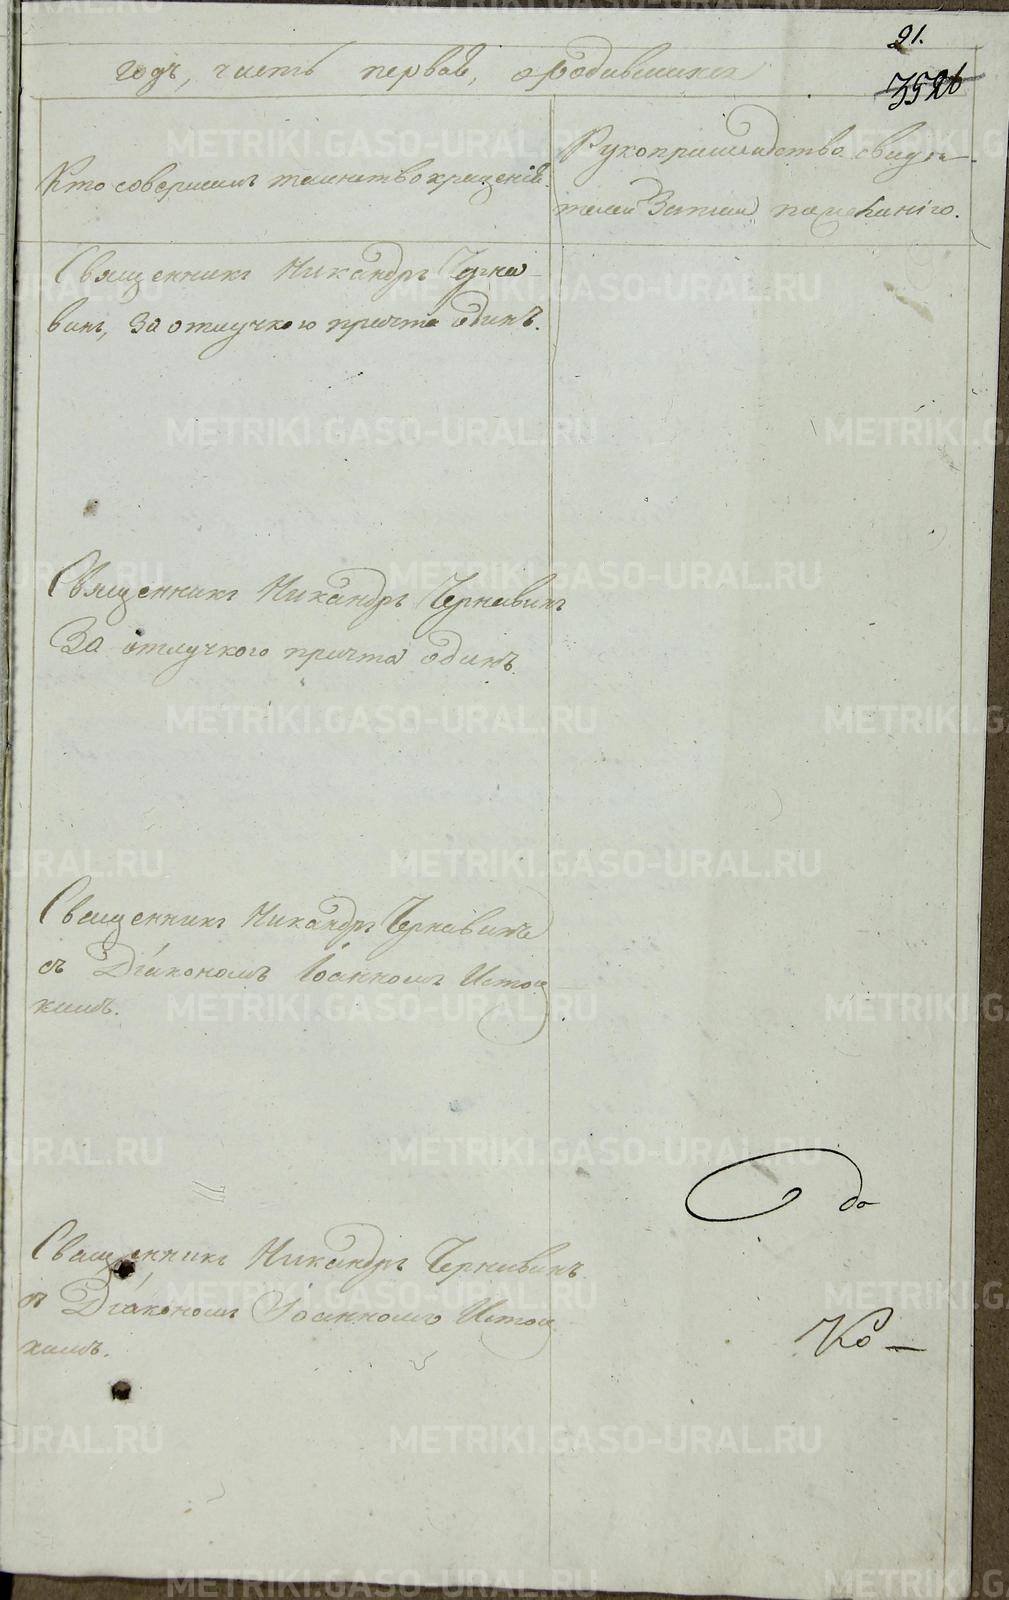 21.
3526
годъ, часть первая, о родившихся
Кто совершилъ таинство крещенія.
Рукоприкладство свидѣ-
телей записи по желанію.
Священникъ Никандръ Черна-
винъ, за отлучкою причта одинъ.
Священникъ Никандръ Чернавинъ
За отлучкою причта одинъ.
Священникъ Никандръ Чернавинъ
съ Діакономъ Іоанномъ
Священникъ Никандръ Чернавинъ
съ Діакономъ Іоанномъ
METRIKI.GASO-URAL.RU